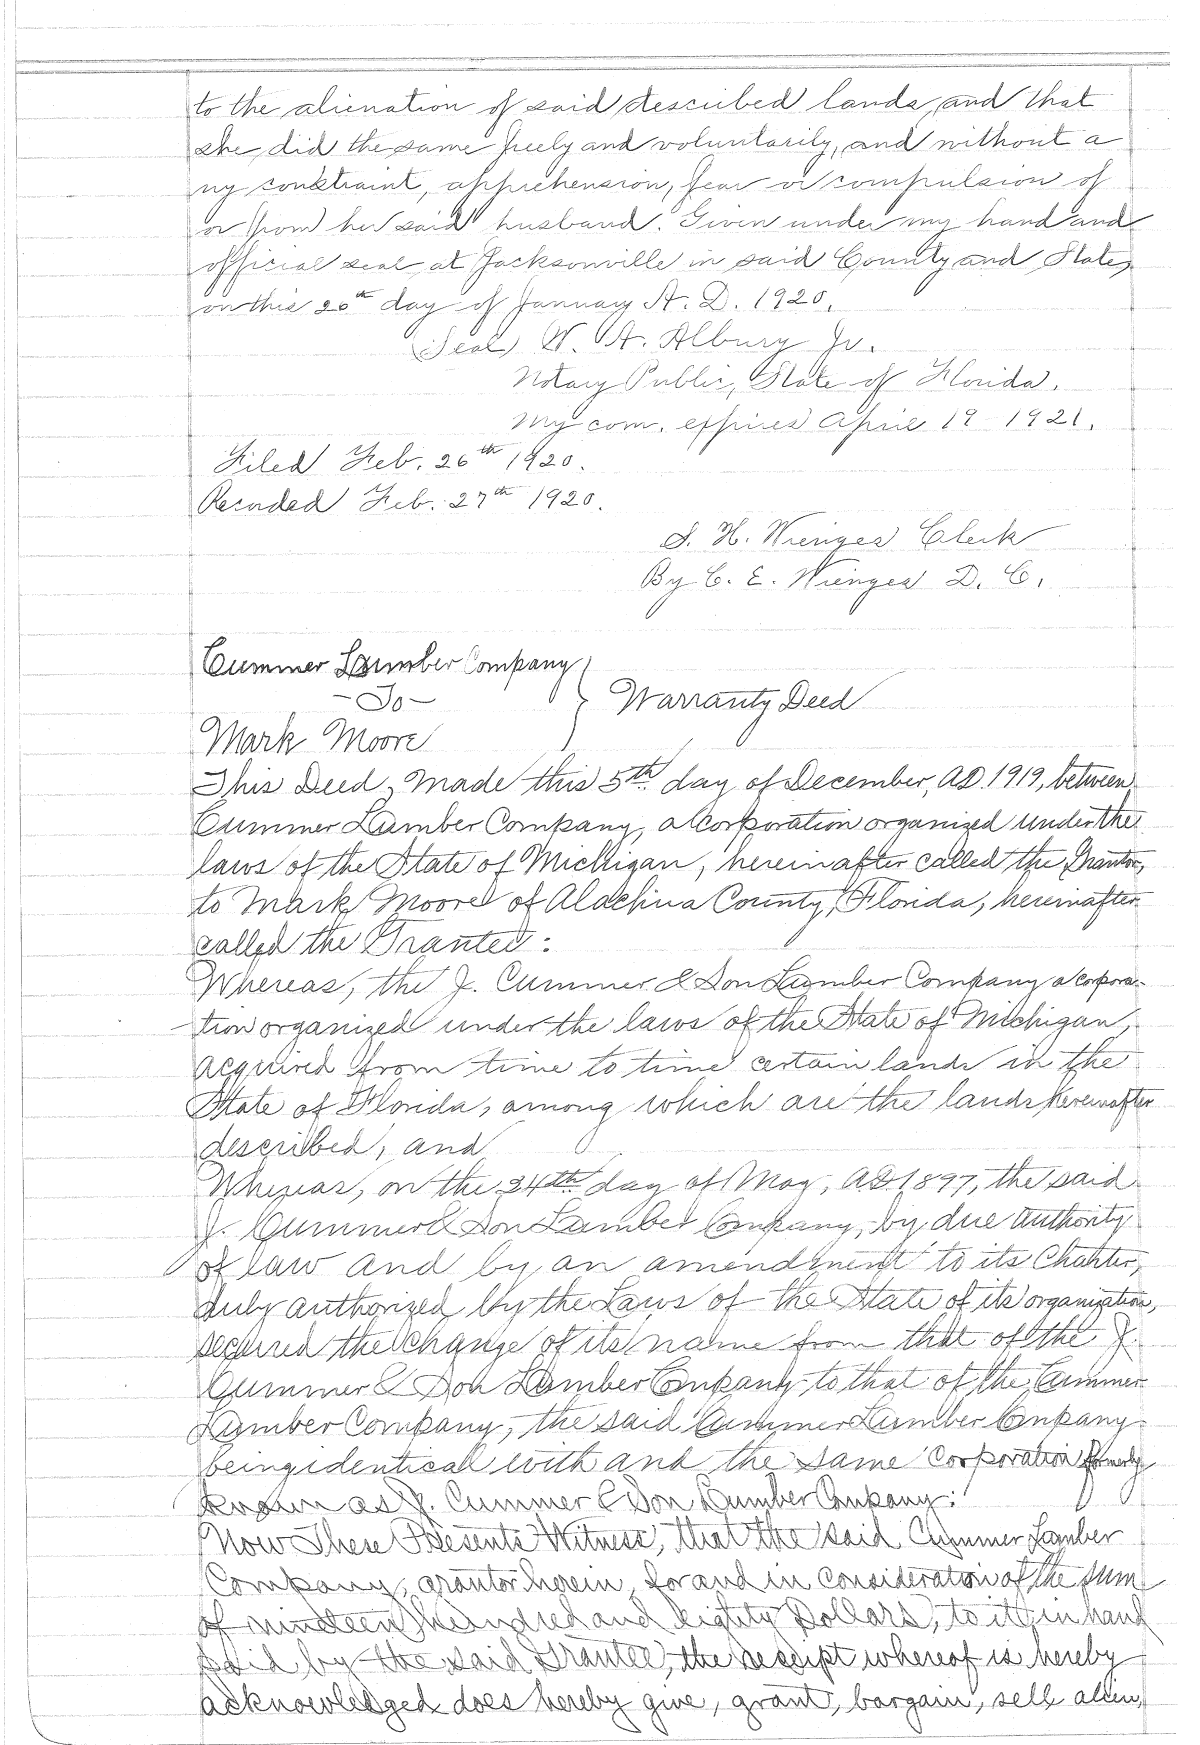 to the alienation of said described lands, and that
she did the same freely and voluntarily, and without a
ny constraint, apprehension, fear or compulsion of
or from her said husband. Given under my hand and
official seal at Jacksonville in said County and State,
on this 20th day of January A. D. 1920.
(Seal) W. A. Albury Jr.
Notary Public, State of Florida.
My com. expires April 19 1921.
Filed Feb. 26th 1920.
Recorded Feb. 27th 1920.
S. H. Wienges Clerk
By C. E. Wienges D. C.
Cummer Lumber Company
-To- } Warranty Deed
Mark Moore
This Deed, Made this 5th day of December, A.D. 1919, between
Cummer Lumber Company, a Corporation organized under the
laws of the State of Michigan, hereinafter called the Grantor,
to Mark Moore of Alachua County, Florida, hereinafter
called the Grantee:
Whereas, the J. Cummer & Son Lumber Company a corpora-
tion organized under the laws of the State of Michigan,
acquired from time to time certain lands in the
State of Florida, among which are the lands hereinafter
described, and
Whereas, on the 24th day of May, A.D. 1897, the said
J. Cummer & Son Lumber Company, by due authority
of law and by an amendment to its Charter,
duly authorized by the Laws of the State of its organization,
secured the change of its name from that of the J.
Cummer & Son Lumber Company to that of the Cummer
Lumber Company, the said Cummer Lumber Company
being identical with and the same Corporation formerly
known as J. Cummer & Son Lumber Company:
Now These Presents Witness, that the said Cummer Lumber
Company, grantor herein, for and in consideration of the sum
of nineteen hundred and eighty Dollars, to it in hand
paid by the said Grantee, the receipt whereof is hereby
acknowledged does hereby give, grant, bargain, sell alien,